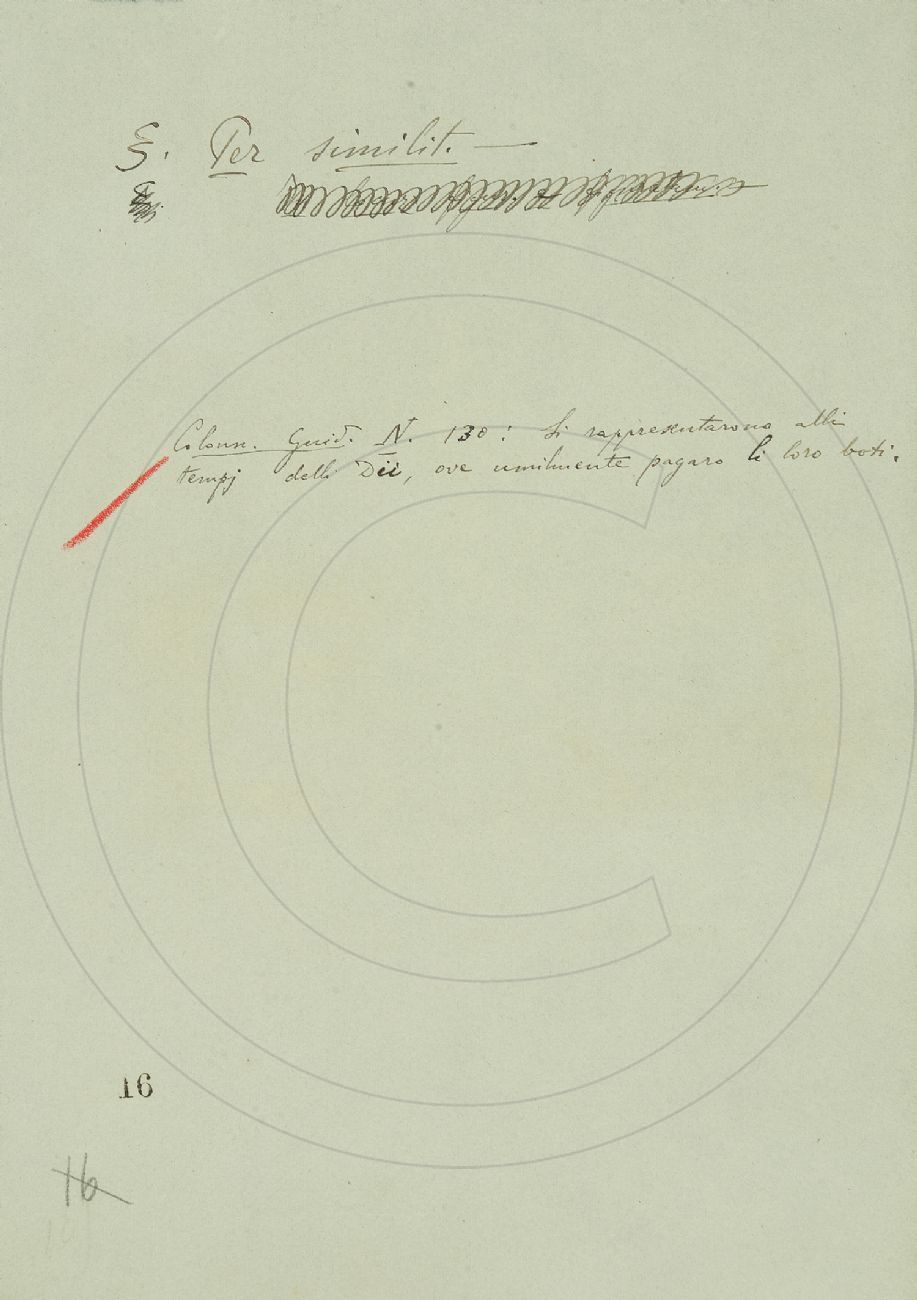 §. Per similit. —
Colonn. Guid. N. 130: Si rappresentarono alli
tempj delli Dii, ove umilmente pagaro li loro boti.
16
16